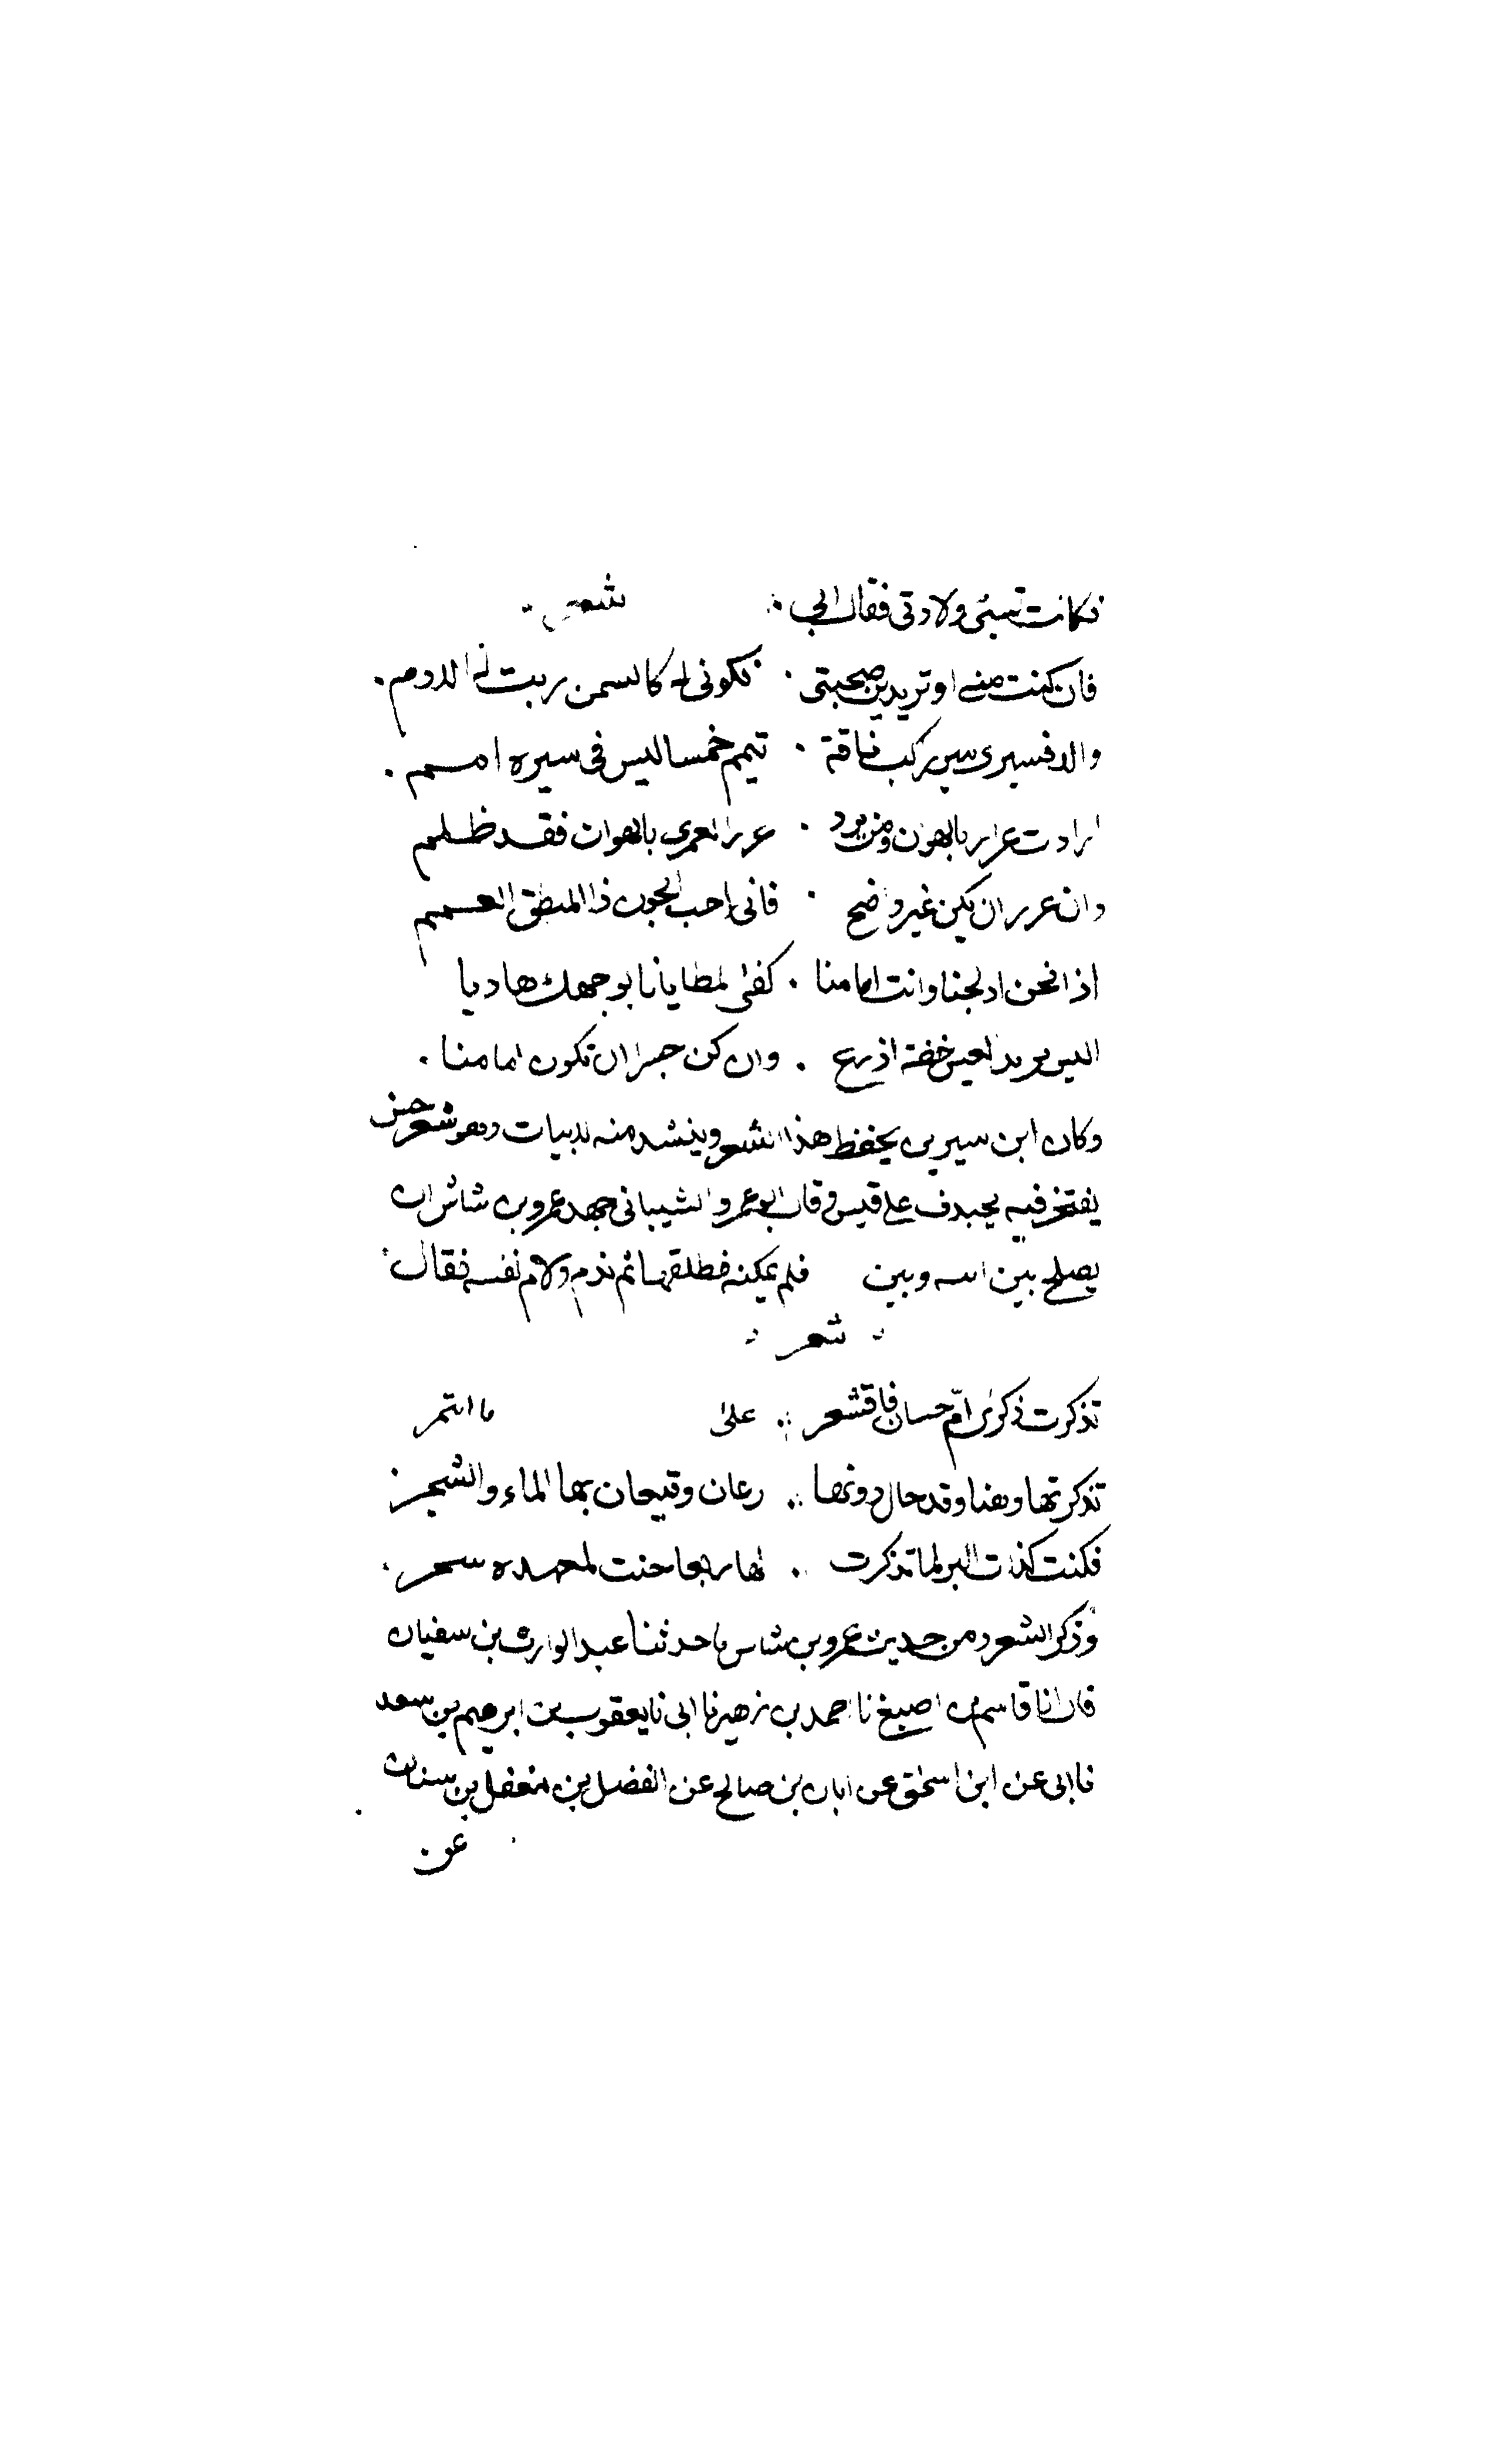 فكانت تسبنى ولادتى فقال ابى شعر
فان كنت منى او تريدين صحبتى . فكونى له كالسمن ربت له الادم .
والا فسيرى سير راكب ناقة . تيمم خمسا ليس فى سيره امم .
ارادت عرار بالهوان ومن يرد . عرارا لعمرى بالهوان فقد ظلم
وان عرار ان يكن غير واضح . فانى احب الجون ذا المنطق العمم
اذا نحن ادلجنا وانت امامنا . كفى لمطايانا بوجهك هاديا
اليس يريد العيس خفة اذرع . وان كن حسرا ان تكون امامنا .
وكان ابن سيرين يحفظ هذا الشعر وينشد منه الابيات وهو شعر حسن
يفتخر فيه بخندف على قيس وقال ابو عمرو الشيبانى جهد عمرو بن شاش ان
يصلح بين ابنه وبين فلم يمكنه فطلقها ثم ندم ولام نفسه فقال
شعر
تذكرت ذكرى ام حسان فاقشعر .. على ما ائتمر
تذكرتها وهنا وقد حال دونها .. رعان وقيعان بها الماء والشجر
فكنت كذات البو لما تذكرت .. لها ربعا حنت لمعهده سحر .
وذكر الشعر ومن حديث عمرو بن شاس ما حدثنا عبد الوارث بن سفيان
قال انا قاسم بن اصبغ نا احمد بن زهير نا ابى نا يعقوب بن ابرهيم بن سعد
نا ابى عن ابن اسحق عن ابان بن صالح عن الفضل بن معقل بن سنان
عن